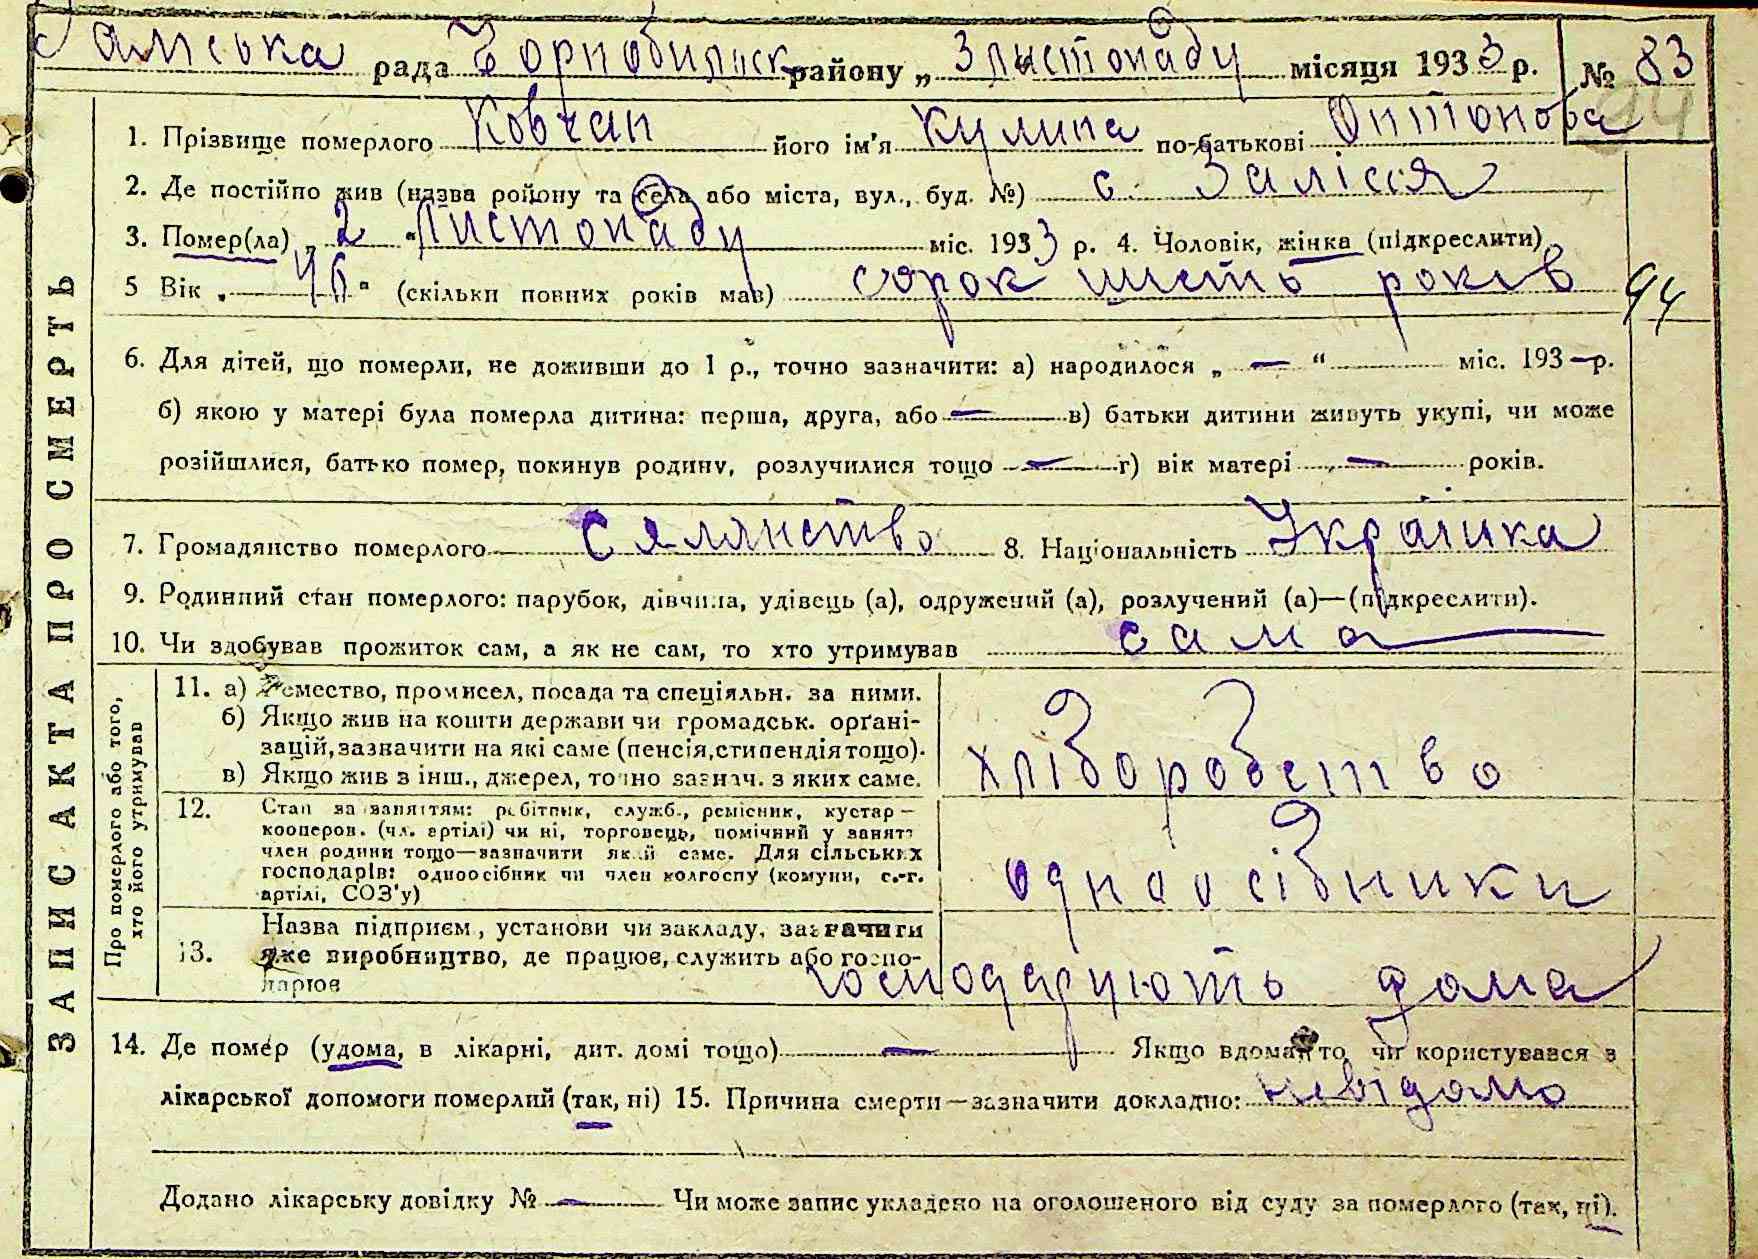 рада Чорнобильск району „ 3 листопаду місяця 1933 р. № 83
94
1. Прізвище померлого Ковчан його ім'я Кулина по-батькові Онтонова
2. Де постійно жив (назва району та села або міста, вул., буд. №) с. Залісся
3. Помер(ла) „ 2 " Листопаду міс. 1933 р. 4. Чоловік, жінка (підкреслити)
5 Вік „ 46 " (скільки повних років мав) сорок шість років
94
6. Для дітей, що померли, не доживши до 1 р., точно зазначити: а) народилося „ — " міс. 193—р.
б) якою у матері була померла дитина: перша, друга, або — в) батьки дитини живуть укупі, чи може
розійшлися, батько помер, покинув родину, розлучилися тощо — г) вік матері — років.
7. Громадянство померлого Селянство 8. Національність Українка
9. Родинний стан померлого: парубок, дівчина, удівець (а), одружений (а), розлучений (а)—(підкреслити).
10. Чи здобував прожиток сам, а як не сам, то хто утримував сама
ЗАПИС АКТА ПРО СМЕРТЬ
Про померлого або того,
хто його утримував
11. а) Ремество, промисел, посада та спеціяльн. за ними.
б) Якщо жив на кошти держави чи громадськ. органі-
зацій, зазначити на які саме (пенсія, стипендія тощо).
в) Якщо жив з інш., джерел, точно зазнач. з яких саме.
хліборобство
12. Стан за заняттям: робітник, служб., ремісник, кустар—
кооперов. (чл. артілі) чи ні, торговець, помічний у занятт
член родини тощо—зазначити який саме. Для сільських
господарів: одноосібник чи член колгоспу (комуни, с.-г.
артілі, СОЗ'у)
одноосібники
13. Назва підприєм., установи чи закладу, зазначити
яке виробництво, де працює, служить або госпо-
дарює
господарують дома
14. Де помер (удома, в лікарні, дит. домі тощо) — Якщо вдома, то чи користувався з
лікарської допомоги померлий (так, ні) 15. Причина смерти—зазначити докладно: невідомо
Додано лікарську довідку № — Чи може запис укладено на оголошеного від суду за померлого (так, ні).